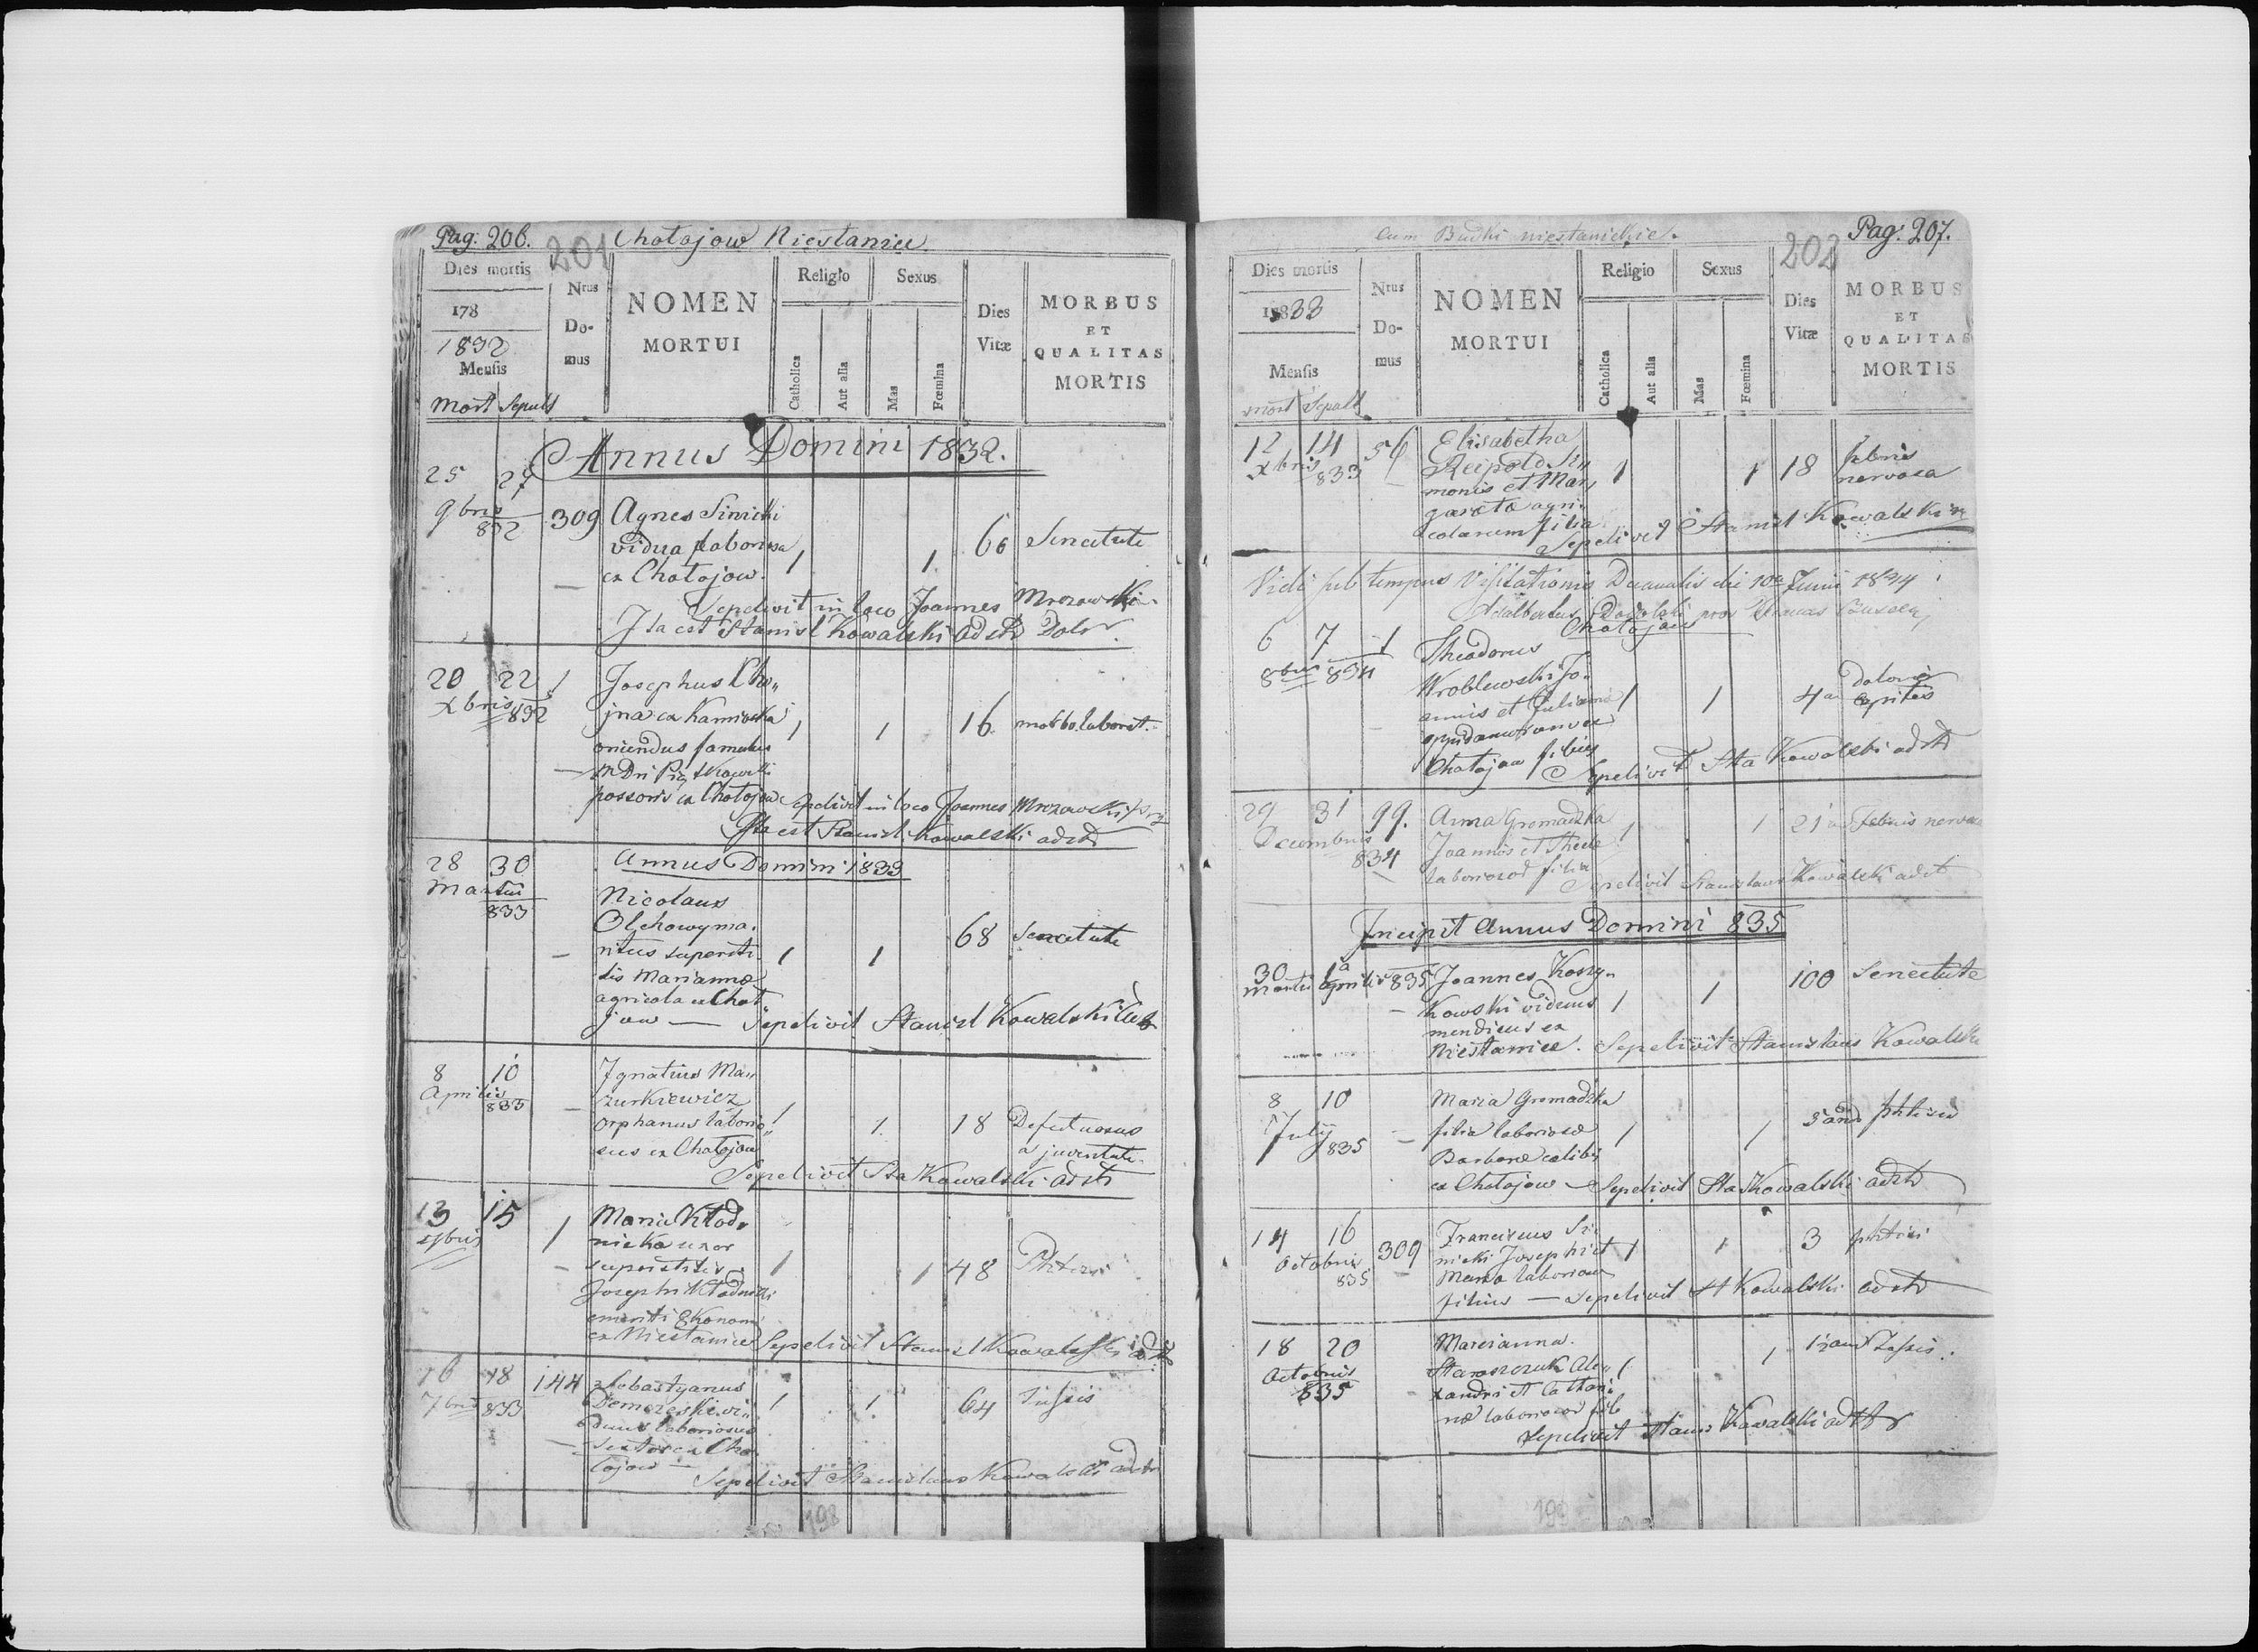 Pag: 206.
201
Chotojow Niestanice
Dies mortis
178
1832
Mensis
Mort Sepult
Nrus
Do-
mus
NOMEN
MORTUI
Religio
Catholica
Aut alia
Sexus
Mas
Fœmina
Dies
Vitæ
MORBUS
ET
QUALITAS
MORTIS
Annus Domini 1832.
25 27
9bris 832 309 Agnes Sinicki
vidua laboriosa 1 1 66 Senectute
ex Chotojow.
Sepelivit in loco Joannes Mrozowski
Ita est Stanisl Kowalski
20 22 1 Josephus Cho„
Xbris 832 jna ex Kamionka 1 1 16 morbo laborat.
oriundus famulus
possoris ex Chotojow Sepelivit in loco Joannes Mrozowski
Ita est Stanisl. Kowalski
28 30 Annus Domini 1833
Martii 833 Nicolaus
Olchowy ma.
ritus supersti. 1 1 68 Senectute
tis Marianna
agricola ex Chot
jow — Sepelivit Stanisl Kowalski
8 10 Ignatius Ma„
Aprilis 833 zurkiewicz
orphanus laborio„ 1 1. 18 Defectuosus
sus ex Chotojow a juventute.
Sepelivit Sta Kowalski
13 15 1 Maria Kłod„
nicka uxor
superstitis 1 1 48 Phtisi
Josephi Kłodnicki
emeriti Ekonomi
ex Niestanice Sepelivit Stanisl Kowalski
16 18 144 Sebastyanus
7bris 833 vi„ 1 1. 64 tussis
duus laboriosus
ex Cho.
tojow —
Sepelivit Stanislaus Kowalski
198
cum Budki niestanickie.
202
Pag: 207.
Dies mortis
1833
Mensis
mort Sepult
Nrus
Do-
mus
NOMEN
MORTUI
Religio
Catholica
Aut alia
Sexus
Mas
Fœmina
Dies
Vitæ
MORBUS
ET
QUALITAS
MORTIS
12 14 56 Elisabetha
Xbris 833 Reipold Si„ 1 1 18 febris
monis et Mar„ nervosa
gareta agri„
colarum filia
Sepelivit Stanisl Kowalski
Vidi sub tempus Visitationis Decanalis die 10a Junii 1834
Adalbertus
Chotojow
6 7 1 Theodorus
8bris 834 Wroblewski Jo„
annis et Julianna 1 1 4a doloris
capitis
Chotojow filius
Sepelivit Sta Kowalski
29 31 99. Anna Gromadzka 1 1 21 febris nervosa
Decembris Joannis et Thecle
834 laborios filia
Sepelivit Stanislaus Kowalski
Incipit Annus Domini 835
30 1a Joannes Kossy„ 100 Senectute
Martii Aprilis 835 kowski viduus 1 1
mendicus ex
Niestanice. Sepelivit Stanislaus Kowalski
8 10 Maria Gromadzka
July 835 filia laboriosæ 1 1 phtisis
Barbaræ celibis
ex Chotojow — Sepelivit Sta Kowalski
14 16 309 Franciscus Si„
Octobris nicki Josephi et 1 1 3 phtisi
835 Maria laborios
filius — Sepelivit St Kowalski
18 20 Marianna
Octobris Staroszczuk Ale„ 1 1 tussis.
835 xandri et Cathari
næ laborios
Sepelivit Stanis Kowalski
199